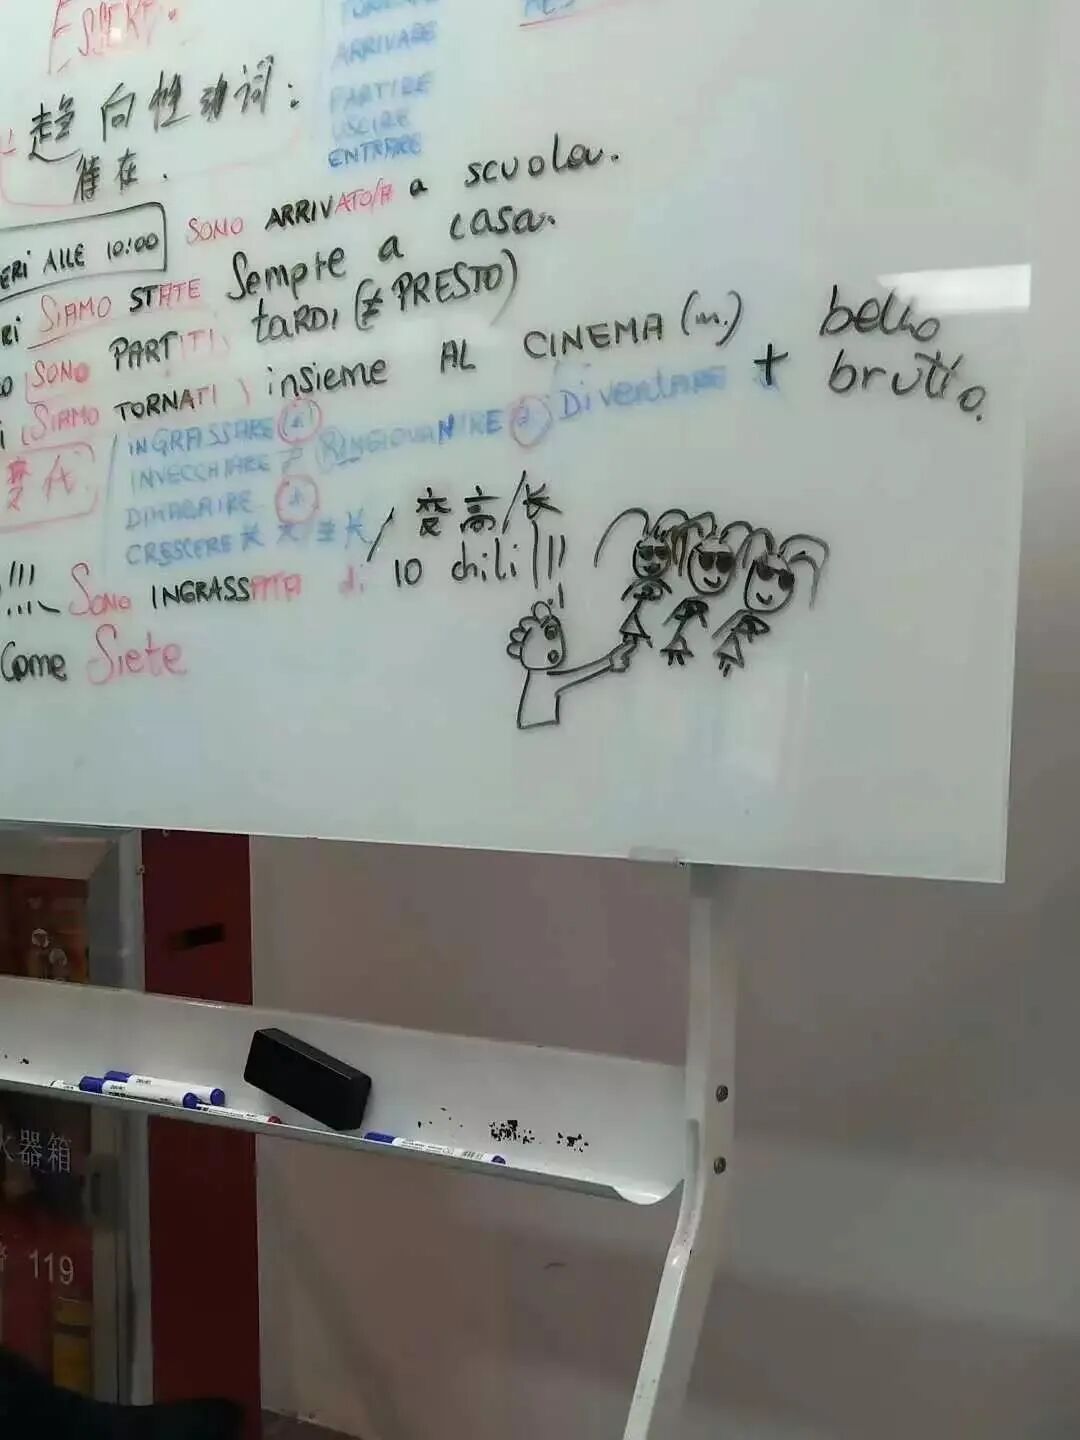 ESSERE.
ARRIVARE
PARTIRE
USCIRE
ENTRARE
趋向性动词:
待在.
ERI ALLE 10:00 SONO ARRIVATO/A a scuola.
RI SIAMO STATE Sempre a casa.
SONO PARTITI tARDI (≠ PRESTO)
i SIAMO TORNATI insieme AL CINEMA (m.)
变 A
INGRASSARE
INVECCHIARE ≠ RINGIOVANIRE Diventare + bello
brutto.
DIMAGRIRE
CRESCERE 长 / 变高/长
!!! SONO INGRASSATA di 10 chili!!!
Come Siete
火器箱
警 119